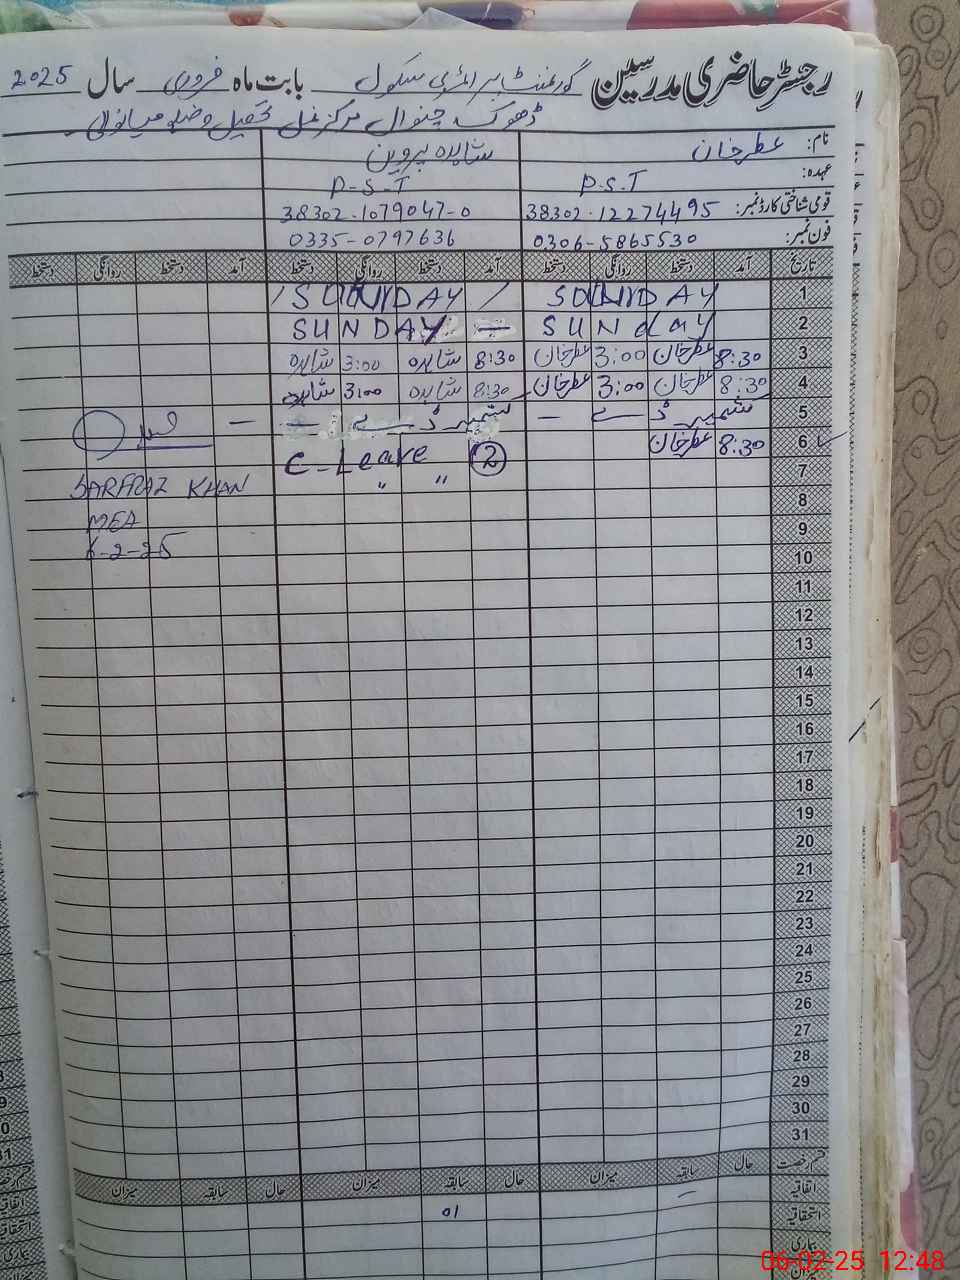 رجسٹر حاضری مدرسین گورنمنٹ پرائمری سکول بابت ماہ فروری سال 2025
ڈھوک چنوال مرکز غل تحصیل و ضلع میانوالی
نام: عطر خان شاہدہ پروین
عہدہ: P.S.T P-S-T
قومی شناختی کارڈ نمبر: 38302-12274495 38302-1079047-0
فون نمبر: 0306-5865530 0335-0797636
تاریخ آمد دستخط روانگی دستخط آمد دستخط روانگی دستخط آمد دستخط روانگی دستخط
1 SUNDAY / SUNDAY /
2 SUNdAY — SUNDAY
3 8:30 عطر خان 3:00 عطر خان 8:30 شاہدہ 3:00 شاہدہ
4 8:30 عطر خان 3:00 عطر خان 8:30 شاہدہ 3:00 شاہدہ
5 کشمیر ڈے — کشمیر ڈے —
6 8:30 عطر خان C-Leave 2
7 " "
SARFRAZ KHAN
8
MEA
9
6-2-25
10
11
12
13
14
15
16
17
18
19
20
21
22
23
24
25
26
27
28
29
30
31
قسم رخصت حال سابقہ میزان حال سابقہ میزان حال سابقہ میزان
اتفاقیہ —
استحقاقیہ 01
بیماری
میزان
06-02-25 12:48